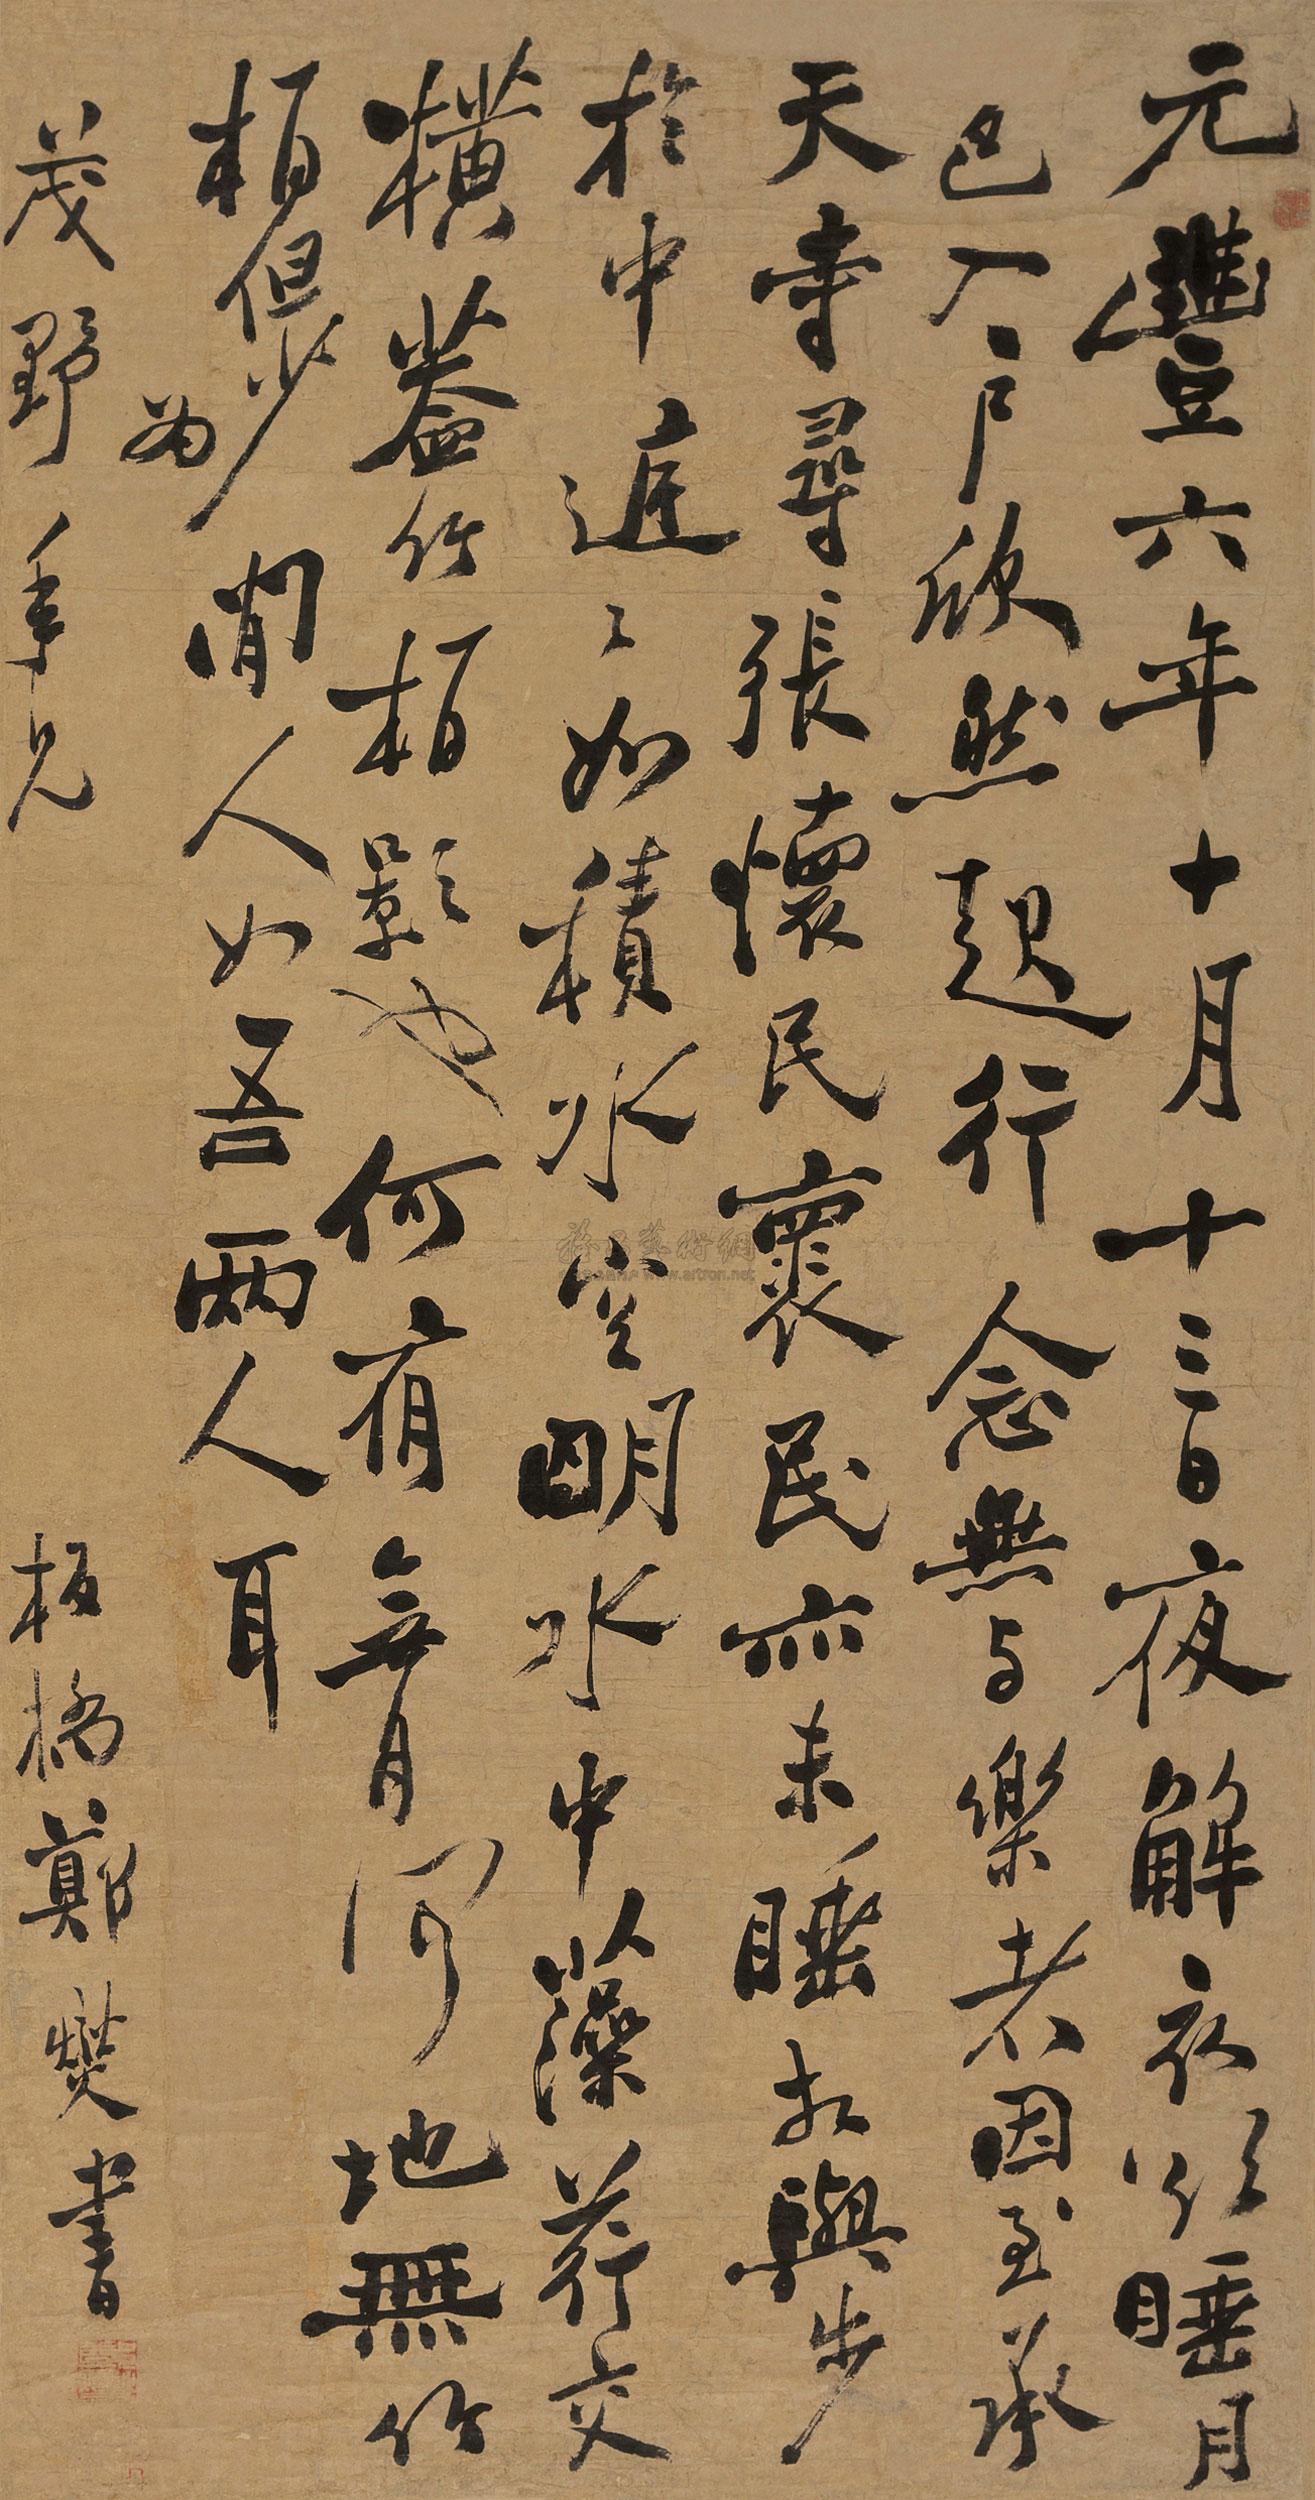 元豐六年十月十三日夜解衣欲睡月
色入戶欣然起行念無与樂者因至承
天寺尋張懷民褱民亦未睡相與步
於中庭〻如積水空明水中藻荇交
橫蓋竹柏影也何夜無月何地無竹
柏但少閒人如吾兩人耳
為
茂野年兄
板橋鄭燮書
雅昌藝術網
www.artron.net